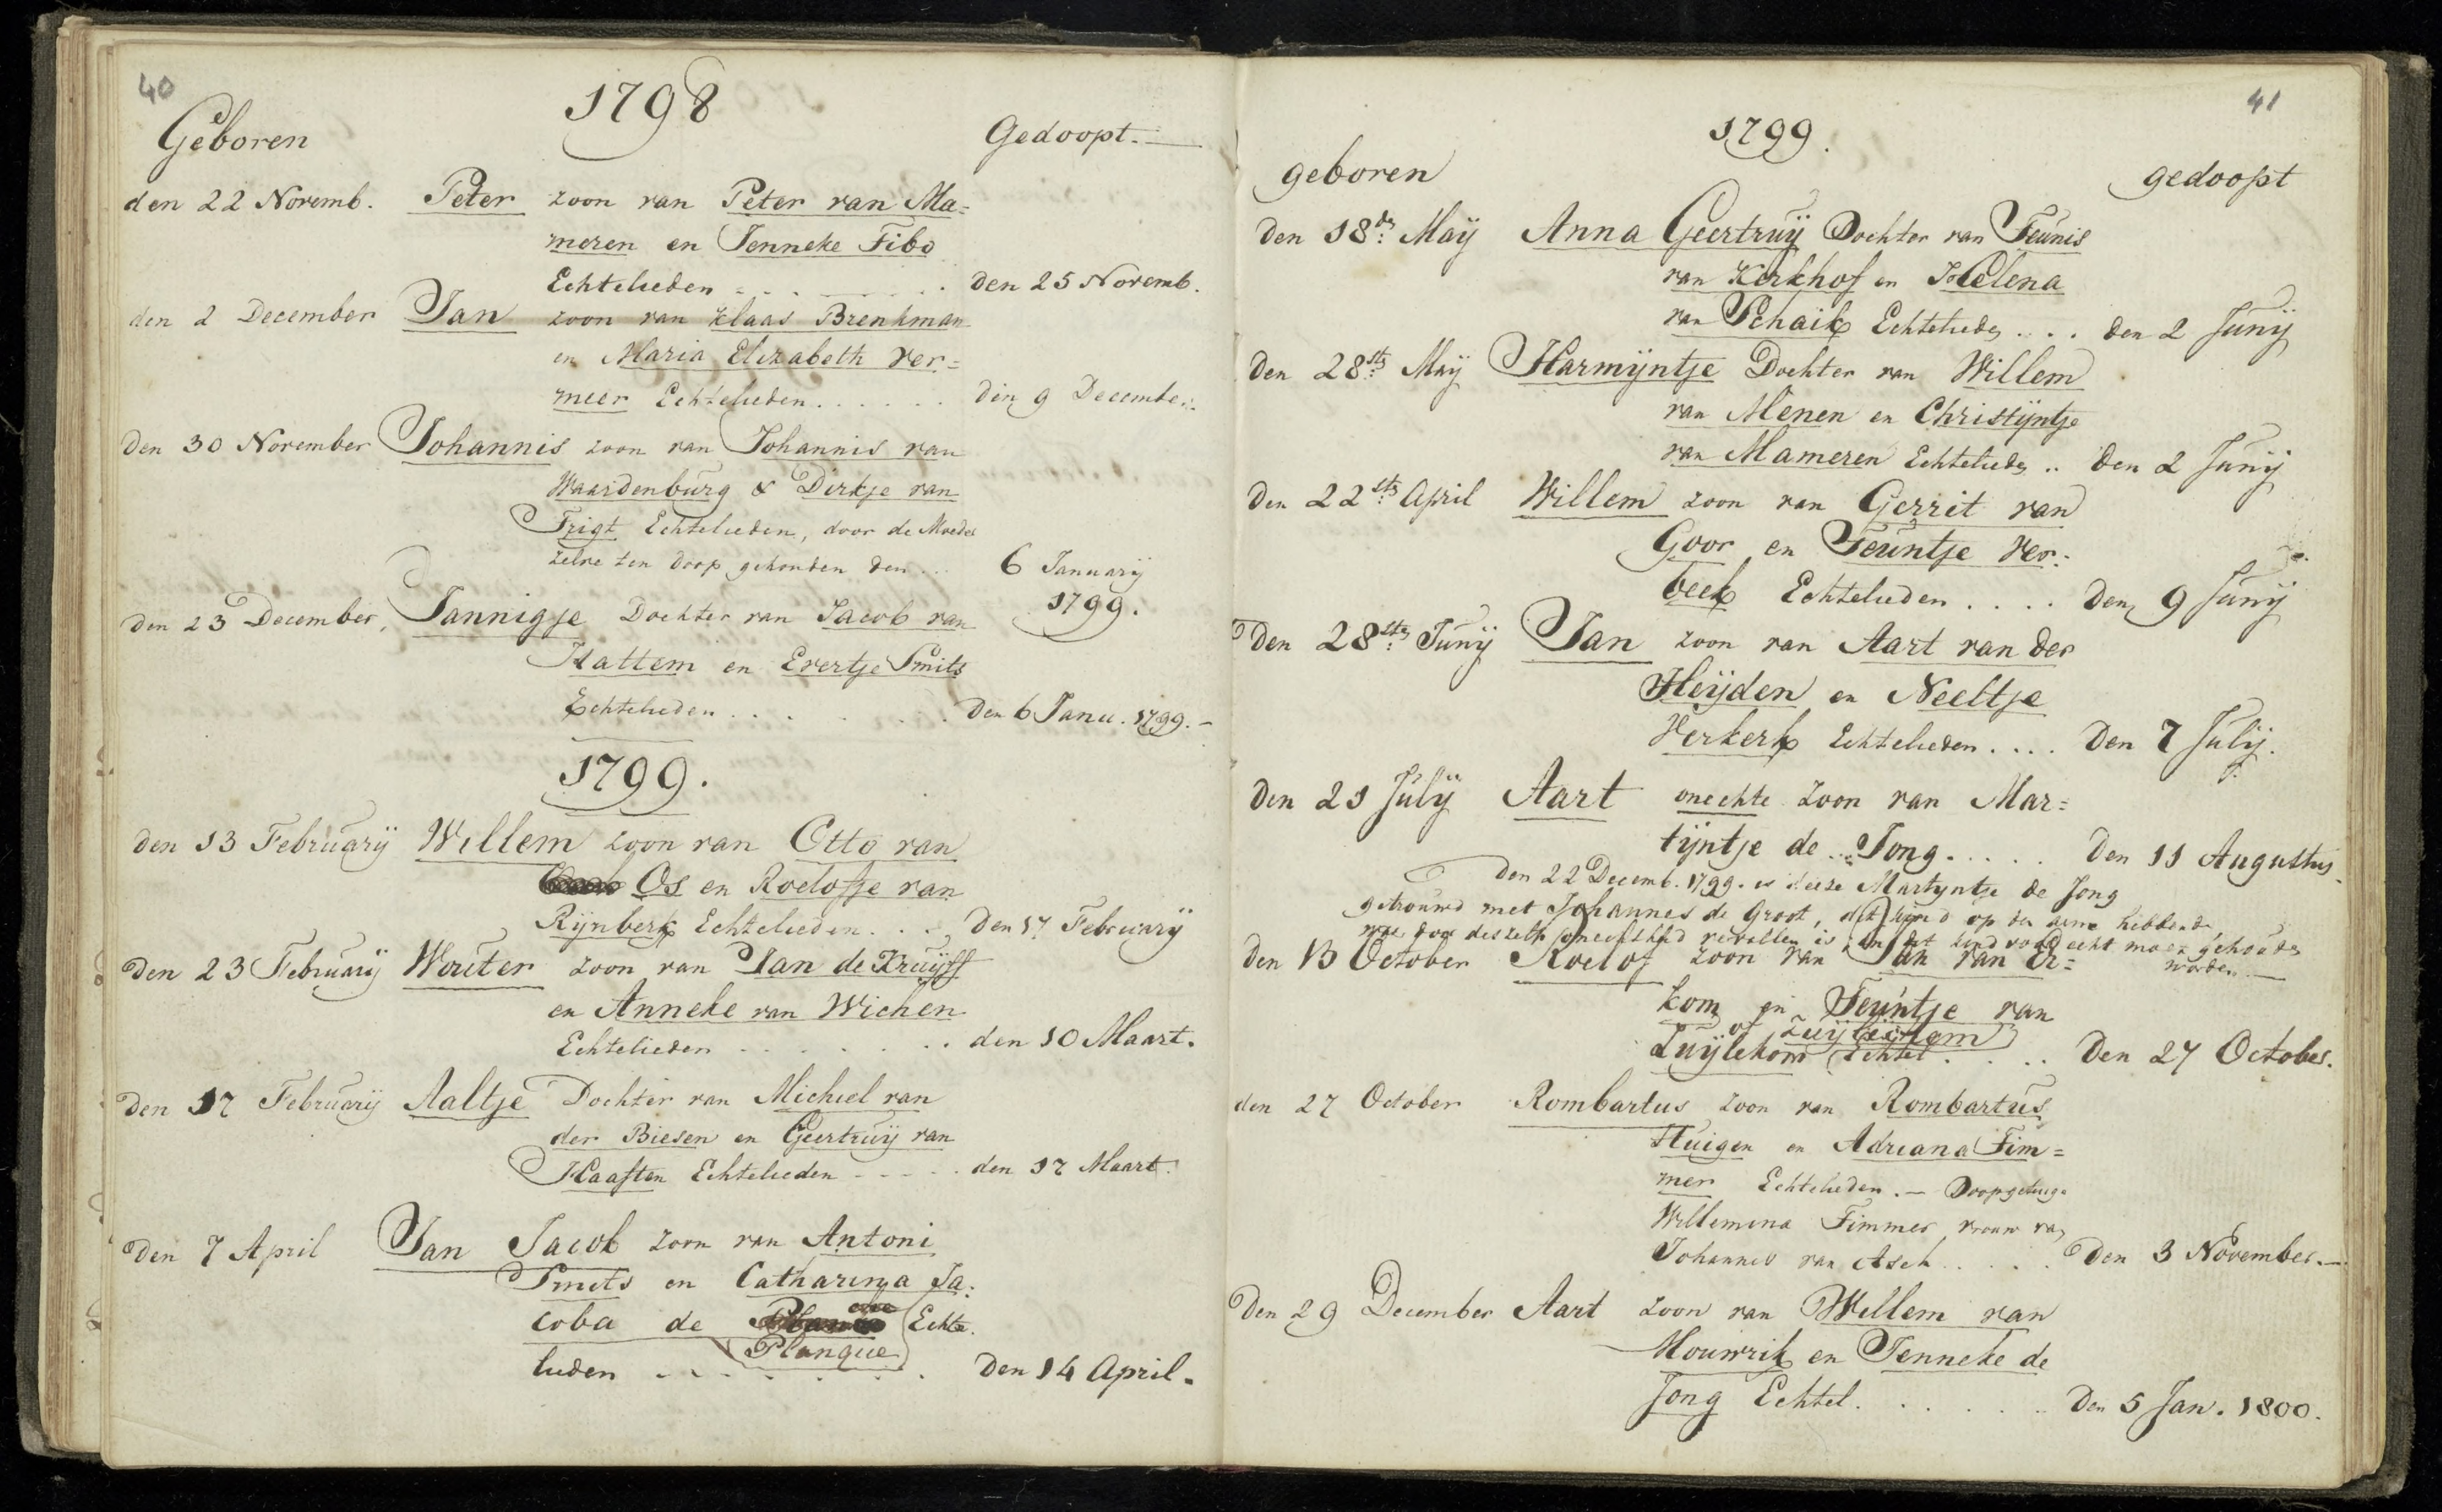 40
1798
Geboren Gedoopt.
den 22 Novemb. Peter zoon van Peter van Ma=
meren en Jenneke Fibo
Echtelieden den 25 Novemb.
den 2 December Jan zoon van Klaas Brenkman
en Maria Elizabeth Ver=
meer Echtelieden den 9 December
den 30 November Johannis zoon van Johannis van
Waardenburg & Dirkje van
Trigt Echtelieden, door de Moeder
zelve ten doop gehouden den 6 January
1799.
den 23 December, Jannigje Dochter van Jacob van
Hattem en Evertje Smits
Echtelieden den 6 Janu. 1799.
1799.
den 13 February Willem zoon van Otto van
Os en Roelofje van
Rijnberk Echtelieden den 17 February
den 23 February Wouter zoon van Jan de Kruyff
en Anneke van Wichen
Echtelieden den 10 Maart.
den 17 February Aaltje Dochter van Michiel van
der Biesen en Geertruij van
Haaften Echtelieden den 17 Maart.
den 7 April Jan Jacob zoon van Antoni
Smits en Catharina Ja:
coba de Echte.
Planque
lieden den 14 April.
41
1799.
geboren gedoopt
den 18de: Maÿ Anna Geertruÿ Dochter van Teunis
van Kerkhof en Helena
van Schaik Echtelieden den 2 Junÿ
den 28ste: Maÿ Harmijntje Dochter van Willem
van Menen en Christijntje
van Mameren Echtelieden den 2 Junÿ
den 22ste: April Willem zoon van Gerrit van
Goor en Teuntje Ver:
beek Echtelieden den 9 Junÿ
den 28ste: Junÿ Jan zoon van Aart van der
Heÿden en Neeltje
Verkerk Echtelieden den 7 Julÿ.
den 21 Julÿ Aart onechte zoon van Mar=
tijntje de Jong den 11 Augustus
den 22 Decemb. 1799. is deeze Martyntje de Jong
getrouwd met Johannes de Groot, dit kind op den arm hebbende,
waar door deszelfs onechtheid vervallen is, en dit kind voor echt moet gehouden
worden.
den 13 October Roelof zoon van Jan van Er=
kom en Teuntje van
of Zuijlichem
Zuÿlekom Echtel. den 27 October.
den 27 October Rombartus zoon van Rombartus
Huigen en Adriana Timmer
mer Echtelieden. Doopgetuige
Willemina Timmer vrouw van
Johannes van Asch den 3 November.
den 29 December Aart zoon van Willem van
Mouwrik en Jenneke de
Jong Echtel. den 5 Jan. 1800.